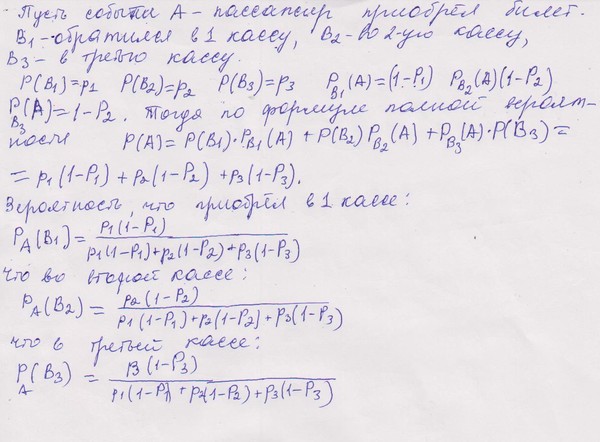 - Пусть событи А - пассажир приобрёл билет.
B₁ - обратился в 1 кассу, B₂ - во 2-ую кассу,
B₃ - в третью кассу.
P(B₁)=p₁ P(B₂)=p₂ P(B₃)=p₃ P_B₁(A)=(1-P₁) P_B₂(A)(1-P₂)
P_B₃(A)=1-P₂. Тогда по формуле полной вероят-
ности P(A)=P(B₁)·P_B₁(A)+P(B₂)P_B₂(A)+P_B₃(A)·P(B₃)=
=p₁(1-P₁)+p₂(1-P₂)+p₃(1-P₃).
Вероятность, что приобрёл в 1 кассе:
P_A(B₁)=p₁(1-P₁)/p₁(1-P₁)+p₂(1-P₂)+p₃(1-P₃)
что во второй кассе:
P_A(B₂)=p₂(1-P₂)/p₁(1-P₁)+p₂(1-P₂)+p₃(1-P₃)
что в третьей кассе:
P_A(B₃)=p₃(1-P₃)/p₁(1-P₁)+p₂(1-P₂)+p₃(1-P₃)